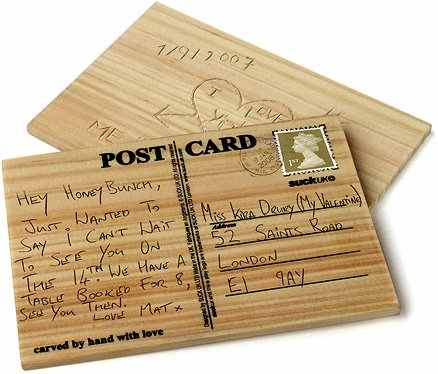 1/9/2007
I LOVE
YOU
ME
POST CARD
HEY HONEYBUNCH,
JUST WANTED TO
SAY I CAN'T WAIT
TO SEE YOU ON
THE 14TH. WE HAVE A
TABLE BOOKED FOR 8,
SEE YOU THEN.
LOVE MAT X
carved by hand with love
1ST
suck UK
Miss KIRA DRURY (MY VALENTINE)
Address
52 SAINTS ROAD
LONDON
E1 9AY